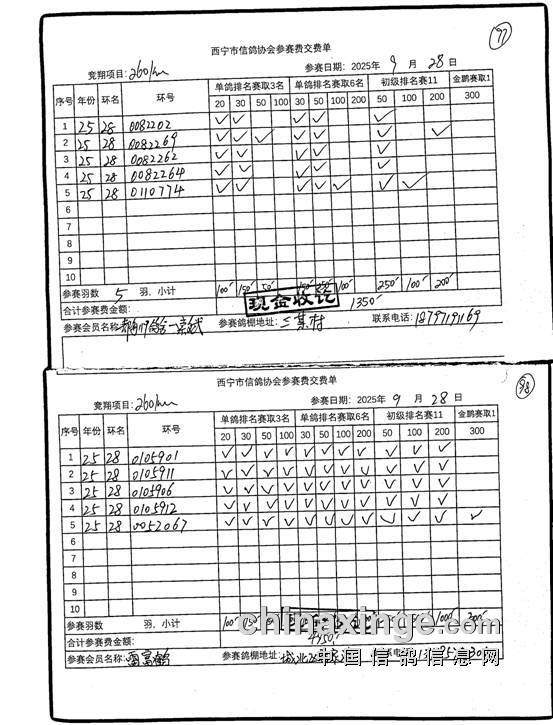 97
西宁市信鸽协会参赛费交费单
竞翔项目：260km 参赛日期：2025年 9 月 28 日
序号 年份 环名 环号 单鸽排名赛取3名 单鸽排名赛取6名 初级排名赛11 金鹏赛取1
20 30 50 100 30 50 100 200 50 100 200 300
1 25 28 0082202 ✓ ✓ ✓ ✓ ✓
2 25 28 0082269 ✓ ✓ ✓ ✓ ✓ ✓ ✓
3 25 28 0082262 ✓ ✓ ✓ ✓ ✓
4 25 28 0082264 ✓ ✓ ✓ ✓ ✓
5 25 28 0110774 ✓ ✓ ✓ ✓ ✓ ✓ ✓
6
7
8
9
10
参赛羽数 5 羽，小计 100 150 50 150 250 100 250 100 200
合计参赛费金额： 现金收讫 1350
参赛会员名称： 参赛鸽棚地址：三其村 联系电话：18797191169
98
西宁市信鸽协会参赛费交费单
竞翔项目：260km 参赛日期：2025年 9 月 28 日
序号 年份 环名 环号 单鸽排名赛取3名 单鸽排名赛取6名 初级排名赛11 金鹏赛取1
20 30 50 100 30 50 100 200 50 100 200 300
1 25 28 0105901 ✓ ✓ ✓ ✓ ✓ ✓ ✓ ✓ ✓ ✓ ✓
2 25 28 0105911 ✓ ✓ ✓ ✓ ✓ ✓ ✓ ✓ ✓ ✓ ✓
3 25 28 0105906 ✓ ✓ ✓ ✓ ✓ ✓ ✓ ✓ ✓ ✓ ✓
4 25 28 0105912 ✓ ✓ ✓ ✓ ✓ ✓ ✓ ✓ ✓ ✓ ✓
5 25 28 0052067 ✓ ✓ ✓ ✓ ✓ ✓ ✓ ✓ ✓ ✓ ✓ ✓
6
7
8
9
10
参赛羽数 羽，小计 100 150 1000 300
chinaxinge.com
合计参赛费金额： 4950
参赛会员名称：雷富鹤 参赛鸽棚地址：城北
中国信鸽信息网